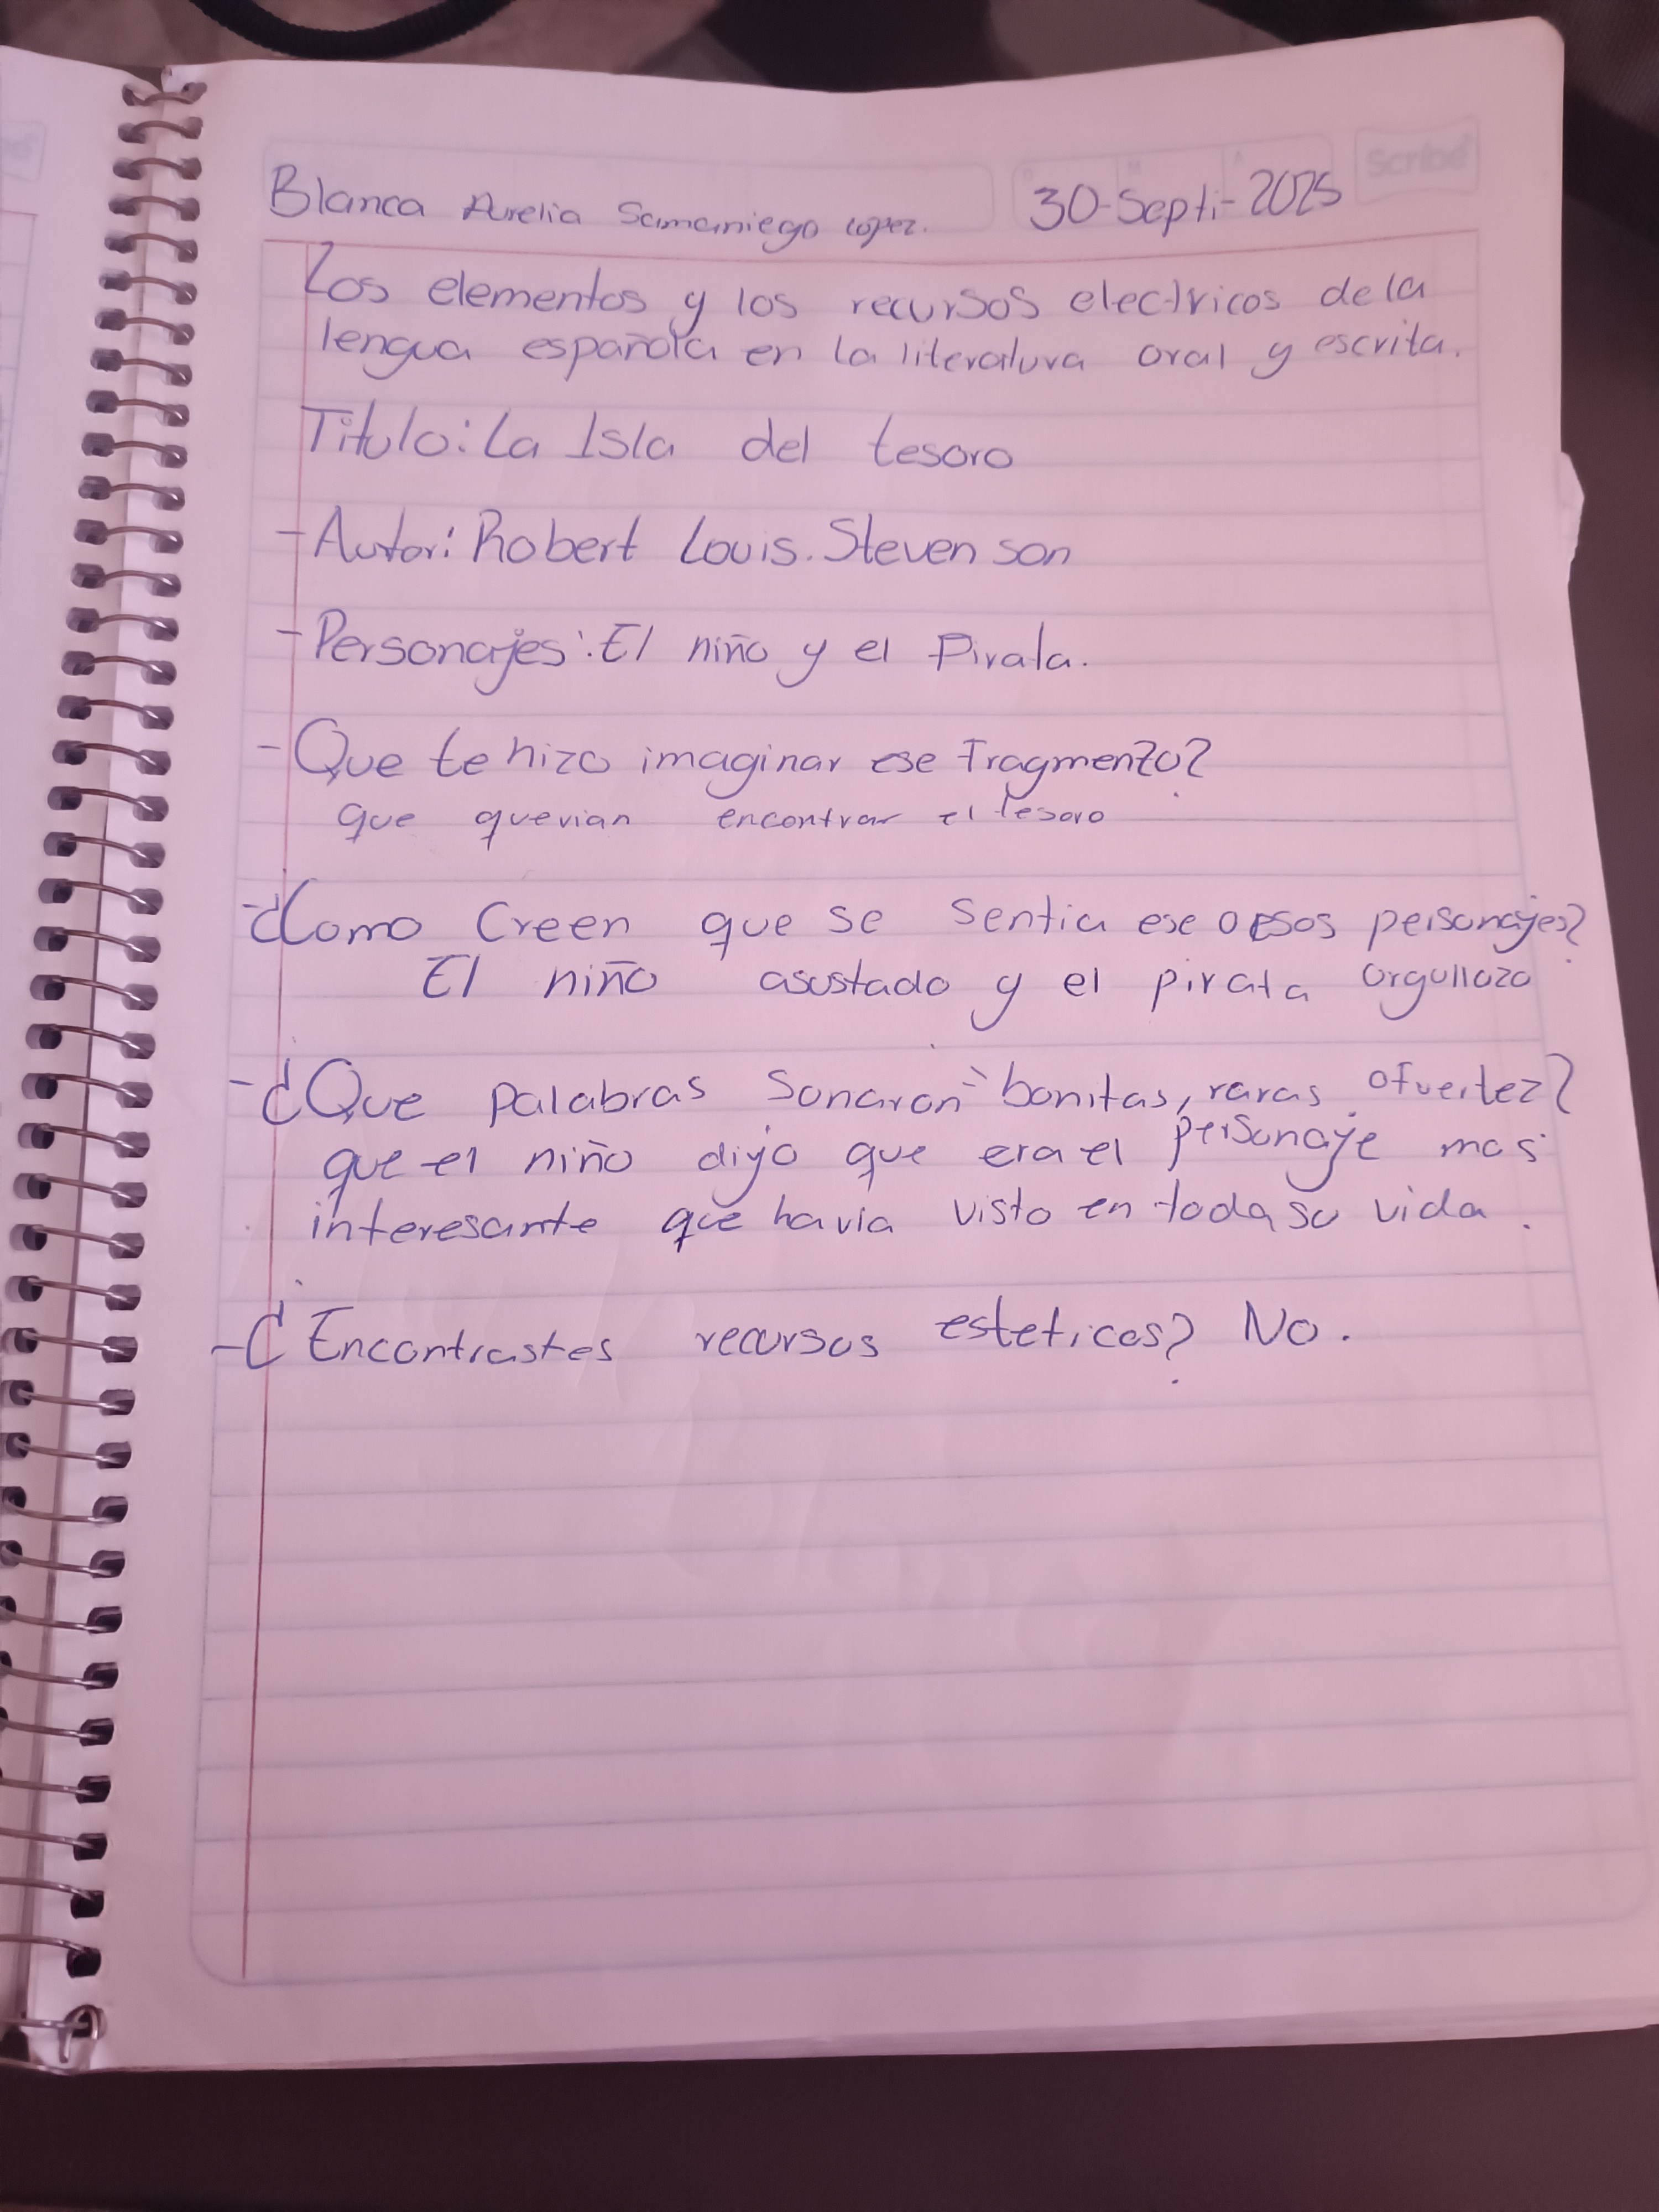 Scribe
Blanca Aurelia Samaniego Lopez. 30-Septi-2025
Los elementos y los recursos electricos de la
lengua española en la literatura oral y escrita.
Titulo: La Isla del tesoro
- Autor: Robert Louis. Stevenson
- Personajes: El niño y el Pirata.
- Que te hizo imaginar ese Fragmento?
que querian encontrar el tesoro
- ¿Como Creen que se sentia ese o esos personajes?
El niño asustado y el pirata orgullozo
- ¿Que palabras sonaron bonitas, raras o fuertez?
que el niño dijo que era el personaje mas
interesante que havia visto en toda su vida.
- ¿Encontrastes recursos esteticos? No.